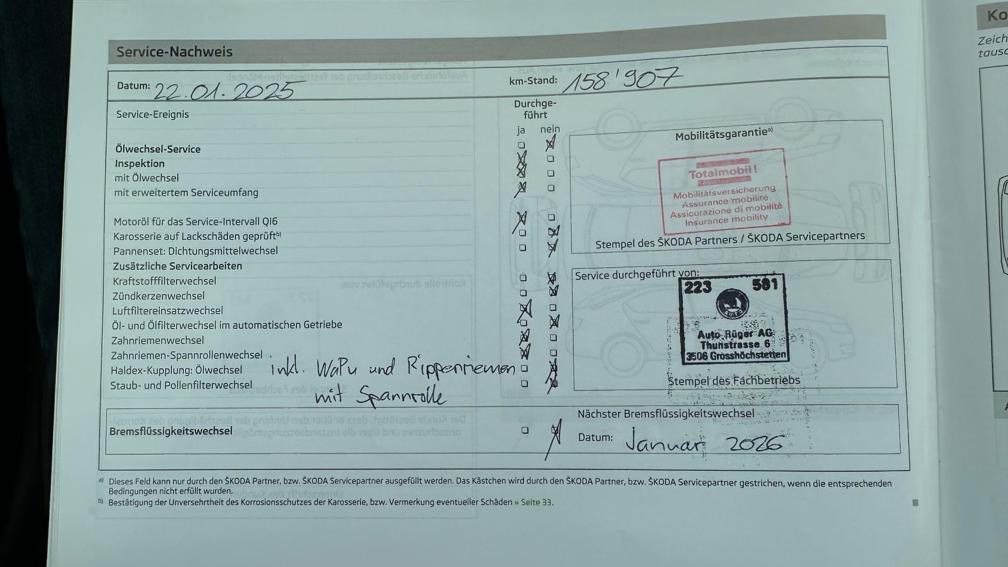 Service-Nachweis
Datum: 22.01.2025
km-Stand: 158'907
Service-Ereignis
Durchge-
führt
ja nein
Ölwechsel-Service
Inspektion
mit Ölwechsel
mit erweitertem Serviceumfang
Motoröl für das Service-Intervall QI6
Karosserie auf Lackschäden geprüft b)
Pannenset: Dichtungsmittelwechsel
Zusätzliche Servicearbeiten
Kraftstofffilterwechsel
Zündkerzenwechsel
Luftfiltereinsatzwechsel
Öl- und Ölfilterwechsel im automatischen Getriebe
Zahnriemenwechsel
Zahnriemen-Spannrollenwechsel
Haldex-Kupplung: Ölwechsel
inkl. WaPu und Rippenriemen
Staub- und Pollenfilterwechsel
mit Spannrolle
Mobilitätsgarantie a)
Totalmobil!
Mobilitätsversicherung
Assurance mobilité
Assicurazione di mobilità
Insurance mobility
Stempel des ŠKODA Partners / ŠKODA Servicepartners
Service durchgeführt von:
223 581
Auto Rüger AG
Thunstrasse 6
3506 Grosshöchstetten
Stempel des Fachbetriebs
Bremsflüssigkeitswechsel
Nächster Bremsflüssigkeitswechsel
Datum: Januar 2026
a) Dieses Feld kann nur durch den ŠKODA Partner, bzw. ŠKODA Servicepartner ausgefüllt werden. Das Kästchen wird durch den ŠKODA Partner, bzw. ŠKODA Servicepartner gestrichen, wenn die entsprechenden
Bedingungen nicht erfüllt wurden.
b) Bestätigung der Unversehrtheit des Korrosionsschutzes der Karosserie, bzw. Vermerkung eventueller Schäden » Seite 33.
Ko
Zeich
tausc